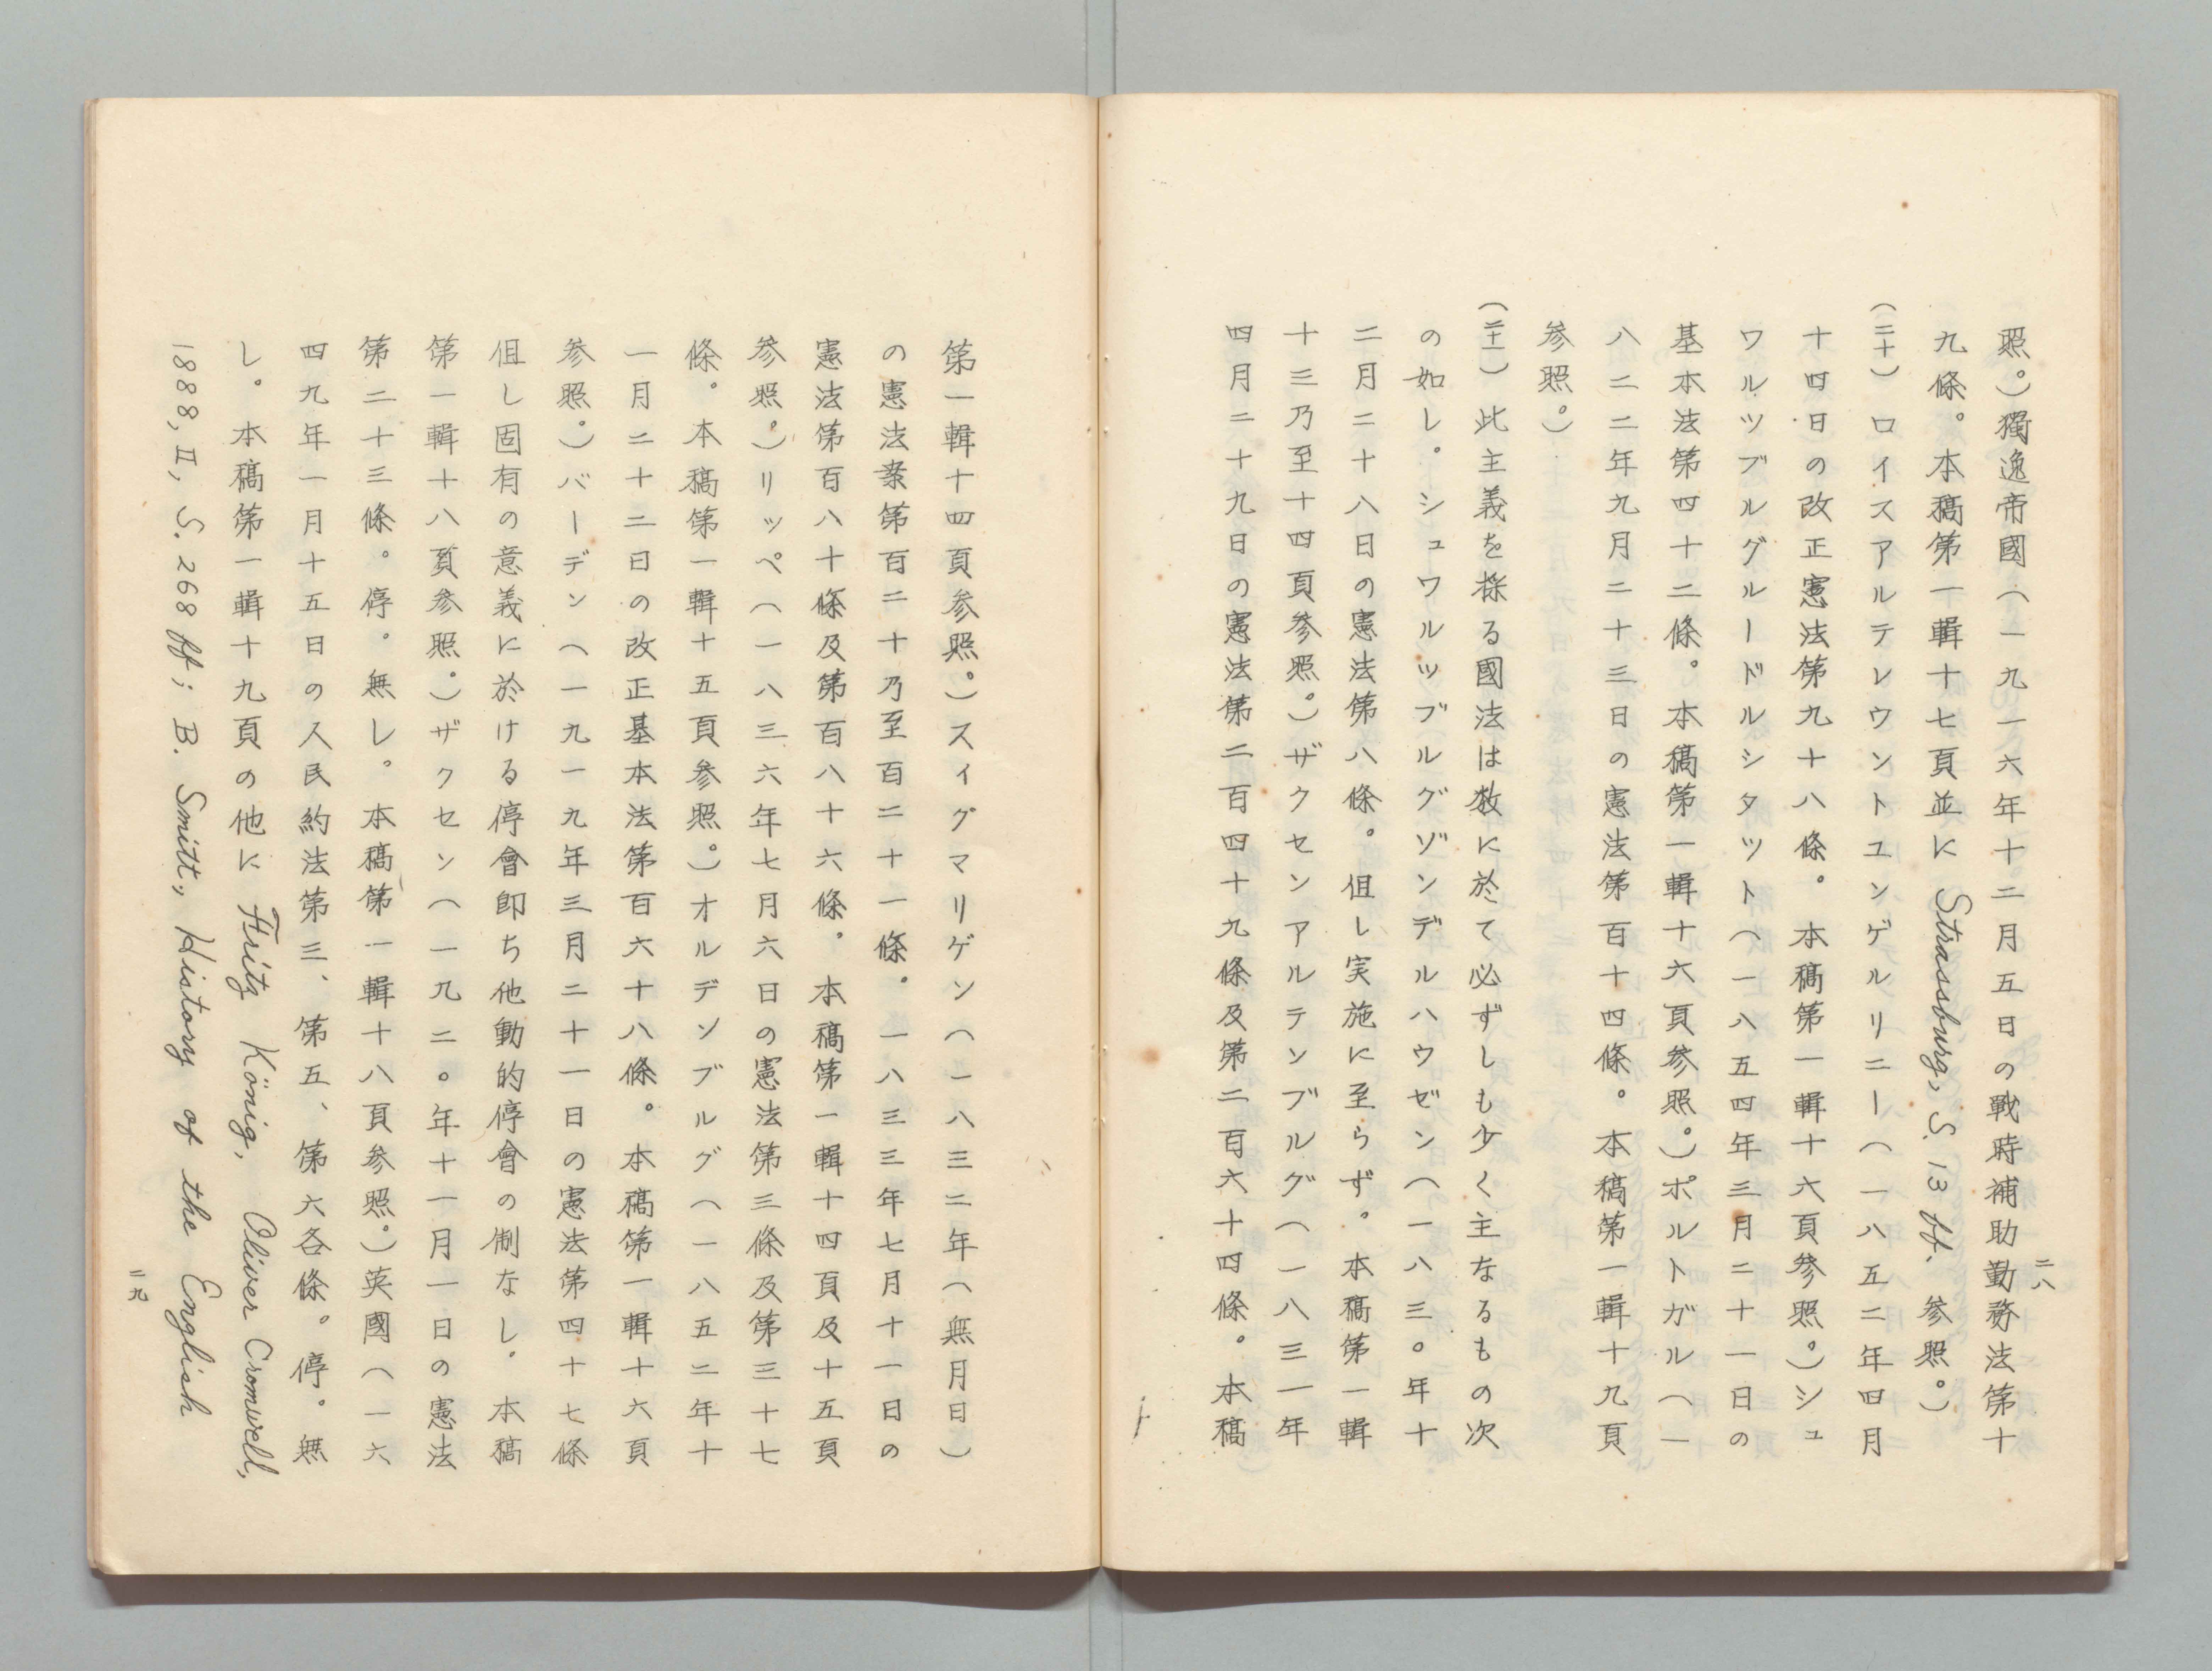 照。)獨逸帝國(一九一六年十二月五日の戰時補助勤務法第十
九條。本稿第一輯十七頁並に Strassburg, S. 13 ff. 参照。)
(二十)ロイスアルテレウントユンゲルリニー(一八五二年四月
十四日の改正憲法第九十八條。本稿第一輯十六頁参照。)シュ
ワルツブルグルードルシタット(一八五四年三月二十一日の
基本法第四十二條。本稿第一輯十六頁参照。)ポルトガル(一
八二二年九月二十三日の憲法第百十四條。本稿第一輯十九頁
参照。)
(二十一)此主義を採る國法は数に於て必ずしも少く主なるもの次
の如し。シュワルツブルグゾンデルハウゼン(一八三〇年十
二月二十八日の憲法第八條。但し実施に至らず。本稿第一輯
十三乃至十四頁参照。)ザクセンアルテンブルグ(一八三一年
四月二十九日の憲法第二百四十九條及第二百六十四條。本稿
二八
第一輯十四頁参照。)スイグマリゲン(一八三二年(無月日)
の憲法案第百二十乃至百二十一條。一八三三年七月十一日の
憲法第百八十條及第百八十六條。本稿第一輯十四頁及十五頁
参照。)リッペ(一八三六年七月六日の憲法第三條及第三十七
條。本稿第一輯十五頁参照。)オルデンブルグ(一八五二年十
一月二十二日の改正基本法第百六十八條。本稿第一輯十六頁
参照。)バーデン(一九一九年三月二十一日の憲法第四十七條
但し固有の意義に於ける停會卽ち他動的停會の制なし。本稿
第一輯十八頁参照。)ザクセン(一九二〇年十一月一日の憲法
第二十三條。停。無し。本稿第一輯十八頁参照。)英國(一六
四九年一月十五日の人民約法第三、第五、第六各條。停。無
し。本稿第一輯十九頁の他に Fritz König, Oliver Cromwell,
1888, II, S. 268 ff; B. Smitt, History of the English
二九